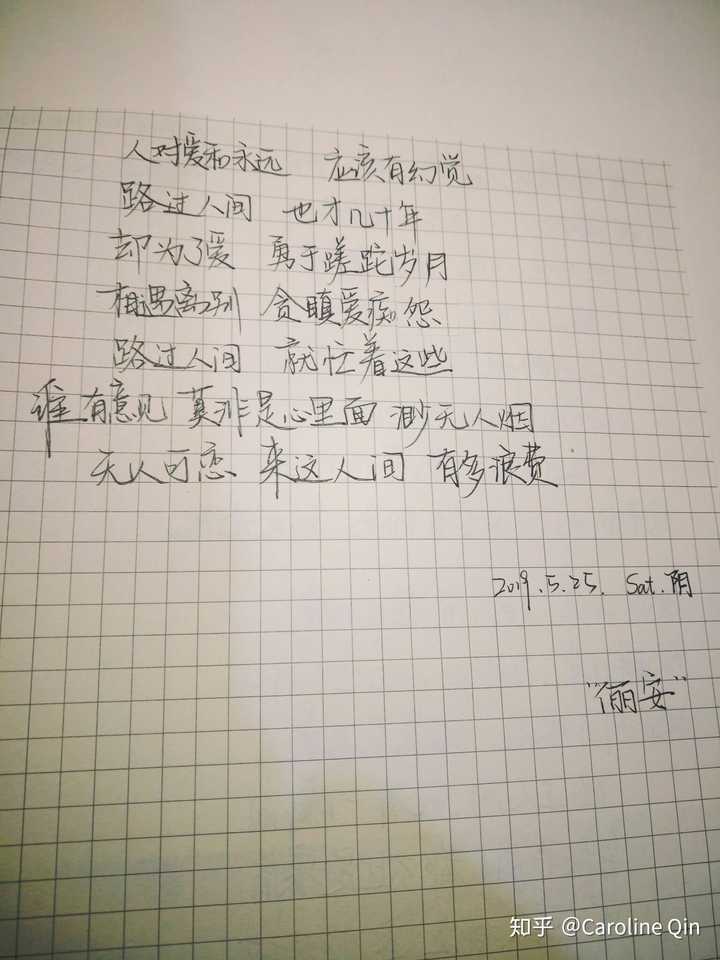 人对爱和永远 应该有幻觉
路过人间 也才几十年
却为了爱 勇于蹉跎岁月
相遇离别 贪瞋爱痴怨
路过人间 就忙着这些
谁有意见 莫非是心里面 渺无人烟
无人可恋 来这人间 有多浪费
2019.5.25. Sat.阴
"俪安"
知乎 @Caroline Qin